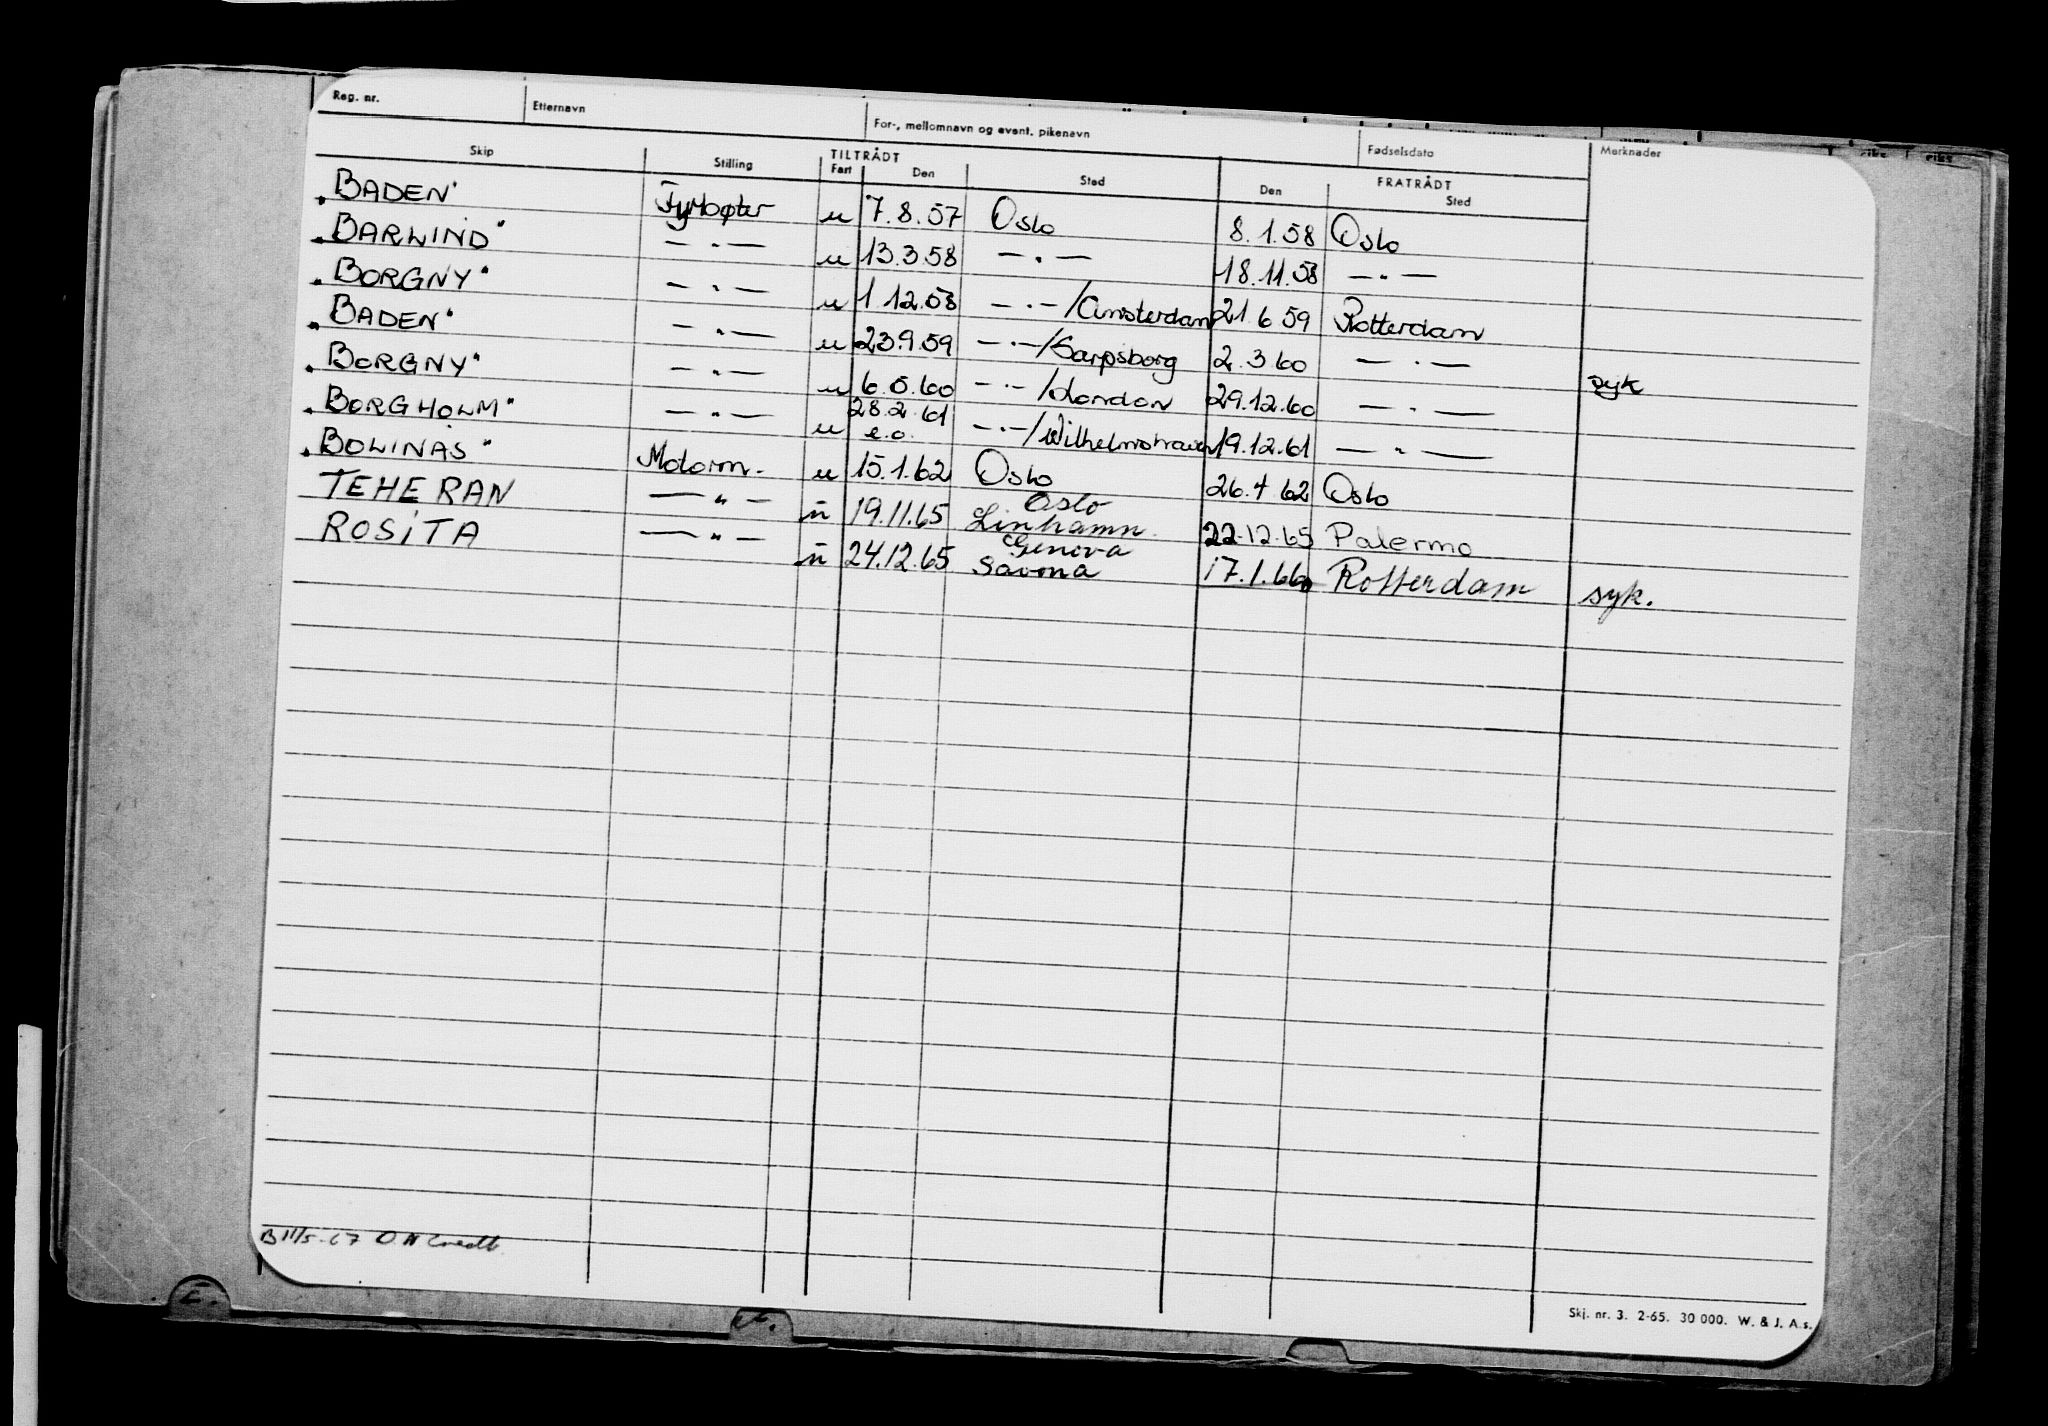 Reg. nr. Etternavn For-, mellomnavn og event. pikenavn Fødselsdato Merknader
Skip Stilling TILTRÅDT Fart Den Sted FRATRÅDT Den Sted
„BADEN" Fyrbøter u 7.8.57 Oslo 8.1.58 Oslo
„BARLIND" —"— u 13.3.58 —"— 18.11.58 —"—
„BORGNY" —"— u 1.12.58 —"—/Amsterdam 21.6.59 Rotterdam
„BADEN" —"— u 23.9.59 —"—/Sarpsborg 2.3.60 —"—
„BORGNY" —"— u 6.5.60 —"—/London 29.12.60 —"— syk
„BORGHOLM" —"— u 28.2.61 e.o. —"—/Wilhelmshaven 19.12.61 —"—
„BOLINAS" Motorm. u 15.1.62 Oslo 26.4.62 Oslo
TEHERAN —"— u 19.11.65 Oslo Linhamn 22.12.65 Palermo
ROSITA —"— u 24.12.65 Genova Savona 17.1.66 Rotterdam syk.
B 11/5-67
Skj. nr. 3. 2-65. 30 000. W. & J. A.s.